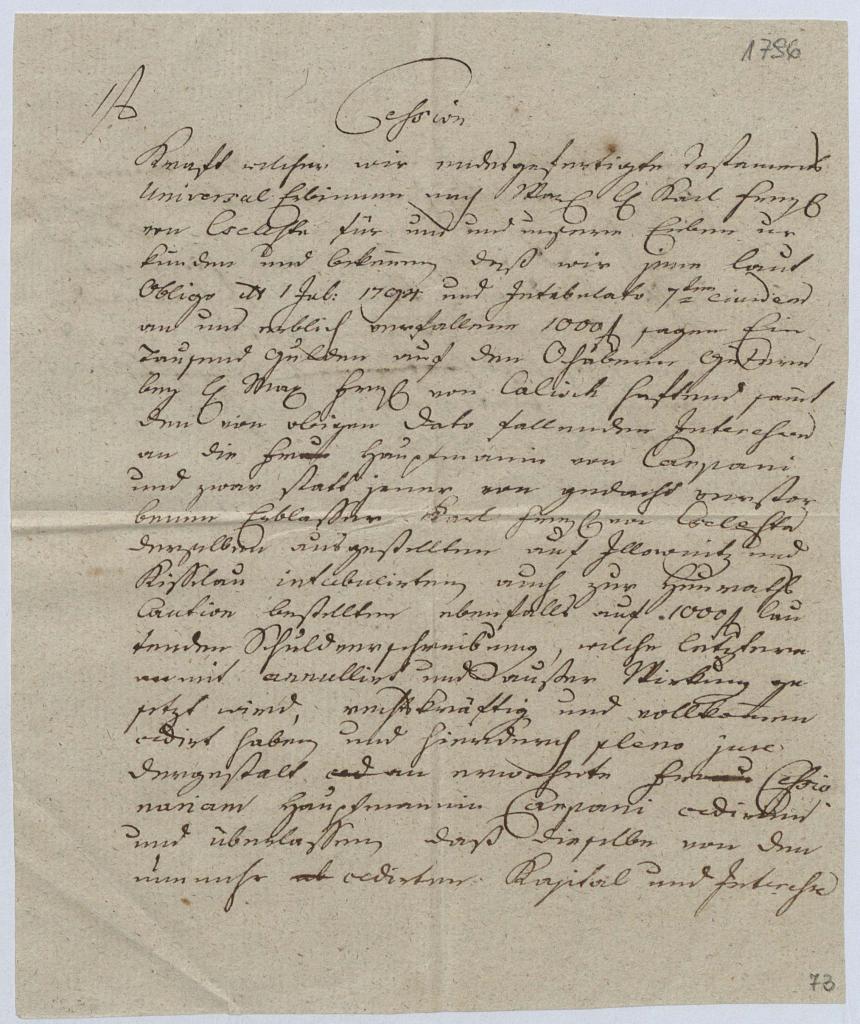 1796
Cession
Kraft welcher wir endesgefertigte Testaments
Universal Erbinnen nach Karl
von Cselesta für uns und unsere Erben ur
kunden und bekennen, daß wir jene laut
Obligo 1 Jul: 1794 und Intabulato 7ten eiusdem
an uns erblich verfallene 1000 f, sagen Ein
Tausend Gulden auf den Güttern
bey Max von Calisch haftend sammt
den von obigen Dato fallenden Interessen
an die Frau Hauptmanin von Caspani
und zwar statt jener von gedacht verstor
benen Erblasser Karl von Cselesta
derselben ausgestellten auf Illownitz und
Kisselau intabulirten, auch zur Heuraths
Caution bestellten ebenfalls auf 1000 f lau
tenden Schuldverschreibung, welche letztere
anmit annullirt und außer Wirkung ge
setzt wird, rechtskräftig und vollkommen
cedirt haben, und hierdurch pleno jure
dergestalt an erwehnte Frau Cessio
nariam Hauptmannin Caspani cediren
und überlassen, daß dieselbe von den
nunmehr cedirten Kapital und Interesse
73